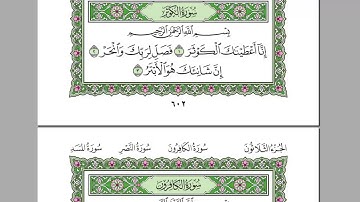 سُورَةُ الكَوْثَرِ
بِسْمِ اللَّهِ الرَّحْمَٰنِ الرَّحِيمِ
إِنَّا أَعْطَيْنَاكَ الْكَوْثَرَ ١ فَصَلِّ لِرَبِّكَ وَانْحَرْ ٢
إِنَّ شَانِئَكَ هُوَ الْأَبْتَرُ ٣
٦٠٢
الجُزْءُ الثَّلَاثُونَ سُورَةُ الكَافِرُونَ سُورَةُ النَّصْرِ سُورَةُ المَسَدِ
سُورَةُ الكَافِرُونَ